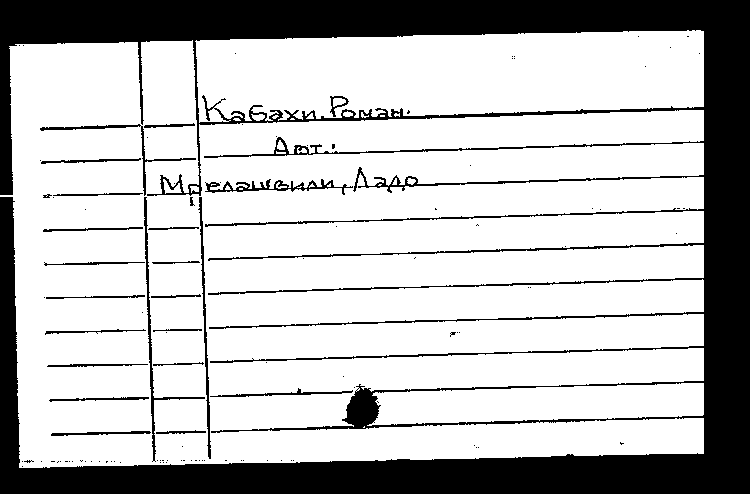 Кабахи. Роман.
Авт.:
Мрелашвили, Ладо